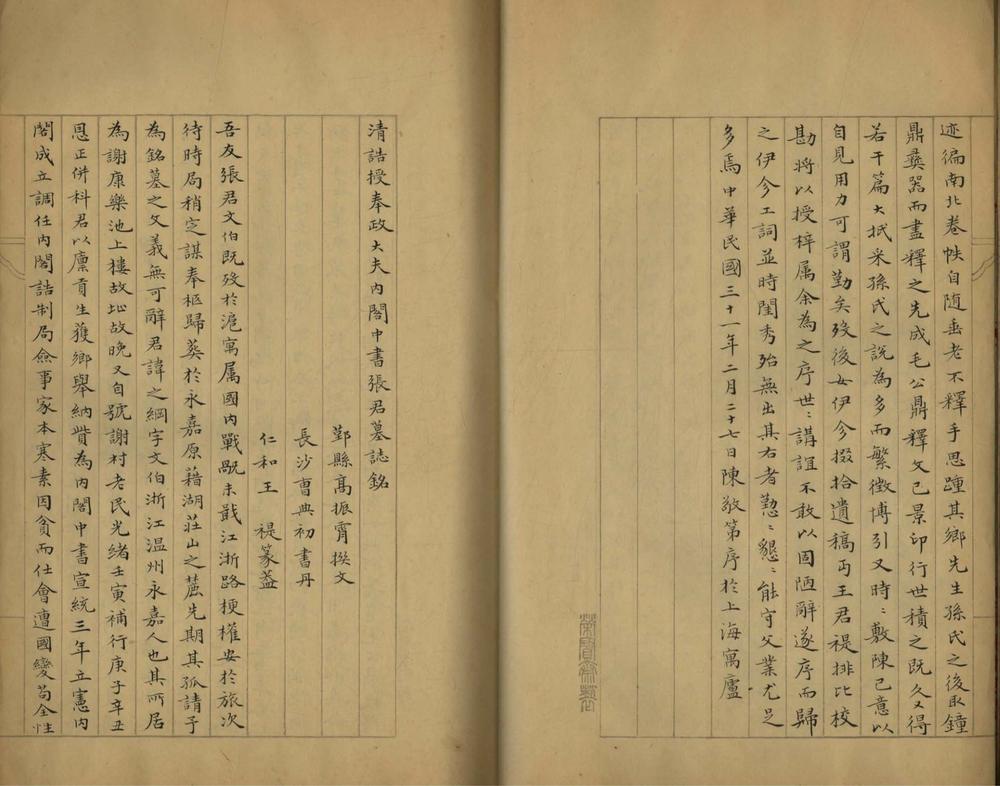 迹徧南北卷帙自随垂老不釋手思踵其鄉先生孫氏之後取鐘
鼎彝器而盡釋之先成毛公鼎釋文已景印行世積之既久又得
若干篇大抵采孫氏之說為多而繁徵博引又時〻敷陳己意以
自見用力可謂勤矣歿後女伊今掇拾遺稿丏王君禔排比校
勘將以授梓属余為之序世〻講誼不敢以固陋辭遂序而歸
之伊今工詞並時閨秀殆無出其右者懃〻懇〻能守父業尤足
多焉中華民國三十一年二月二十七日陳敬第序於上海寓廬
清誥授奉政大夫內閣中書張君墓誌銘
鄞縣高振霄撰文
長沙曺典初書丹
仁和王禔篆蓋
吾友張君文伯既歿於滬寓属國内戰氛未戢江浙路梗權安於旅次
待時局稍定謀奉柩歸葬於永嘉原藉湖莊山之麓先期其孤請予
為銘墓之文義無可辭君諱之綱字文伯浙江温州永嘉人也其所居
為謝康樂池上樓故址故晚又自號謝村老民光緒壬寅補行庚子辛丑
恩正併科君以廩貢生獲鄉舉納貲為内閣中書宣統三年立憲内
閣成立調任内閣誥制局僉事家本寒素因貧而仕會遭國變苟全性